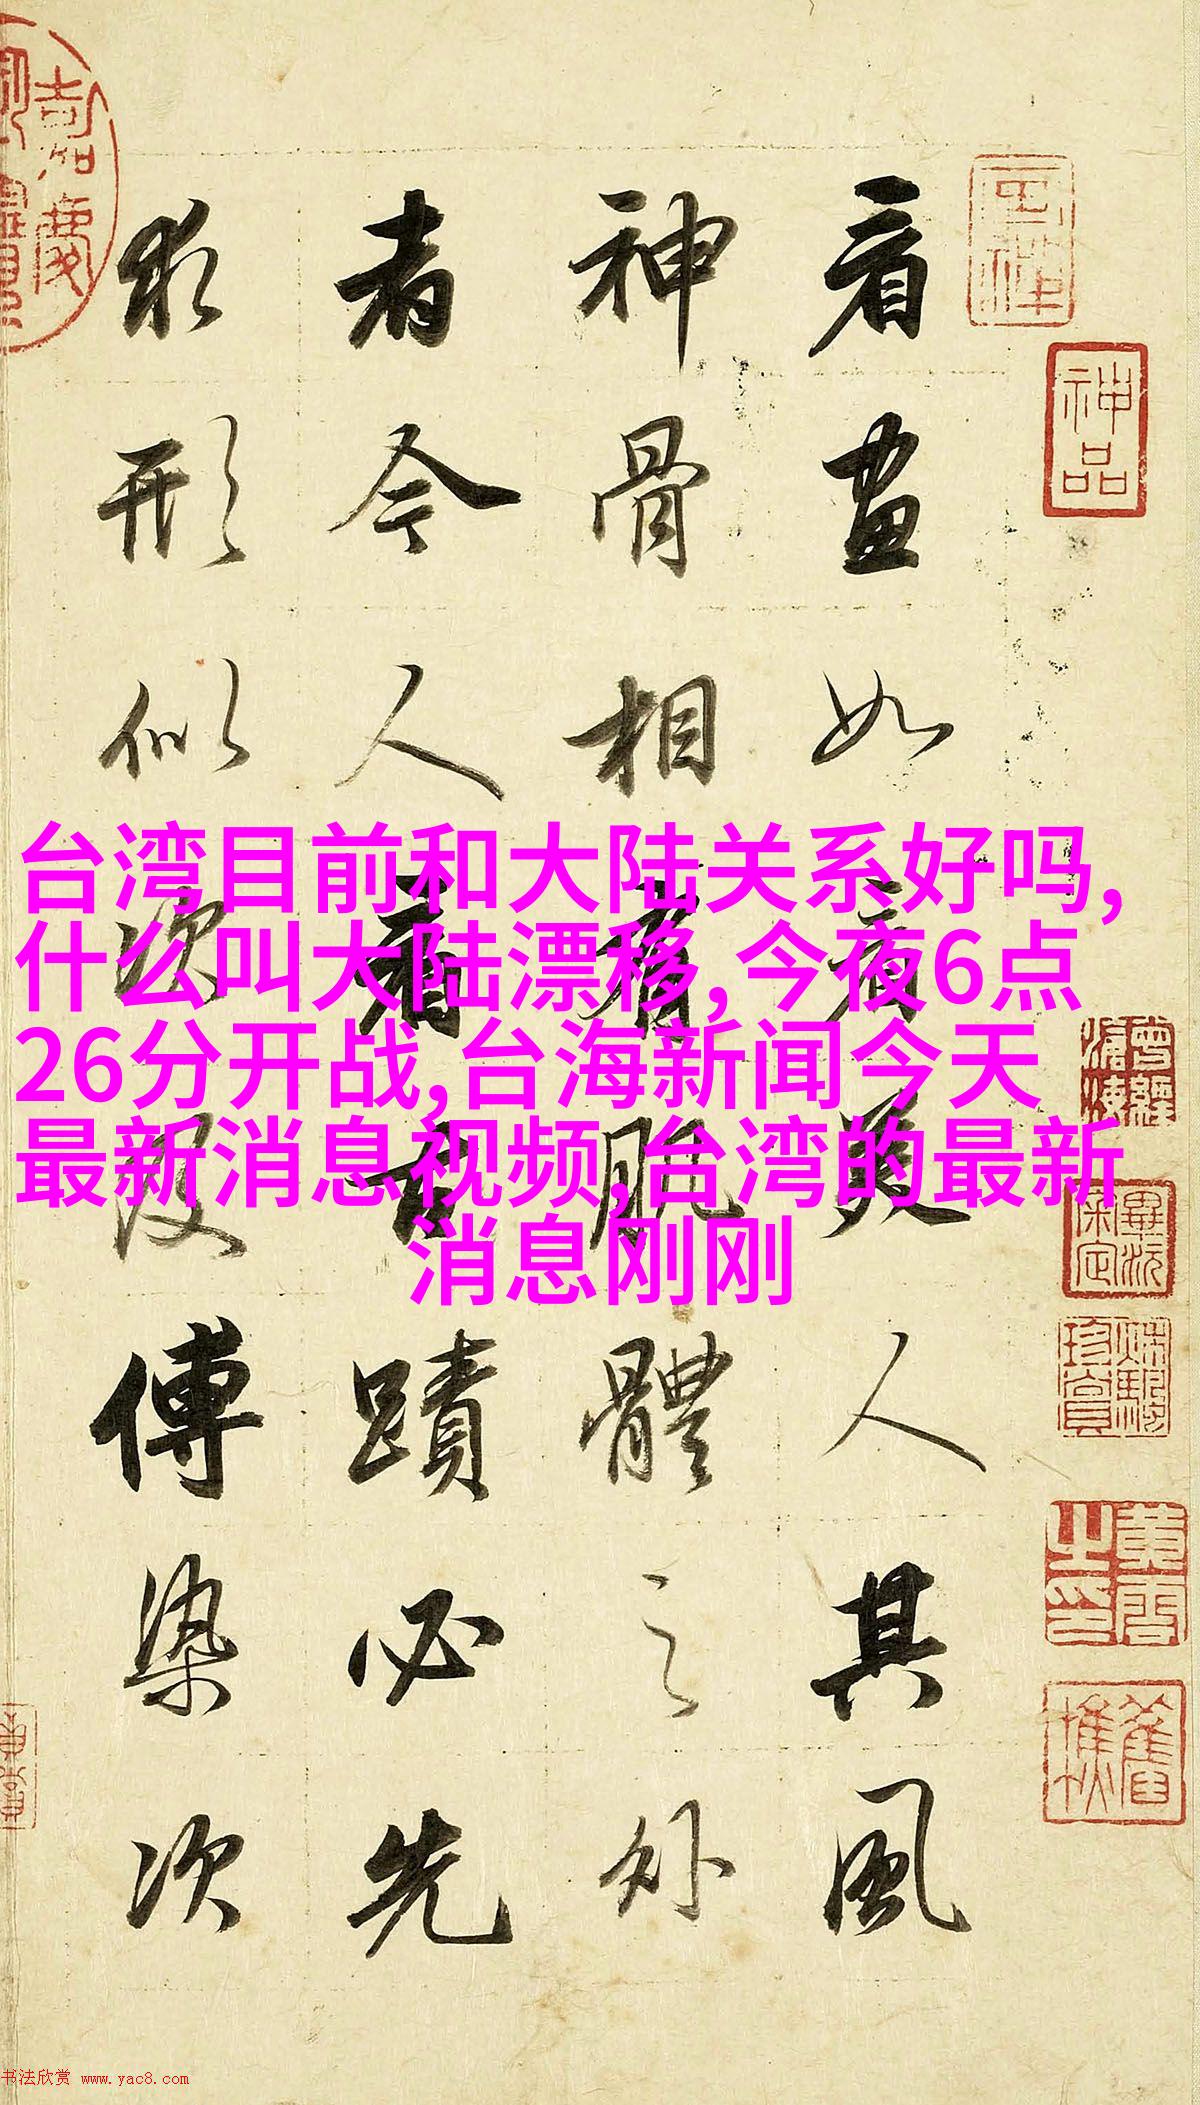 看画如看美人其風
神骨相有肌體之外
者今人看古蹟必先
求形似次及傅染次
神品
嘉慶
台湾目前和大陆关系好吗,
什么叫大陆漂移,今夜6点
26分开战,台海新闻今天
最新消息视频,台湾的最新
消息刚刚
书法欣赏 www.yac8.com